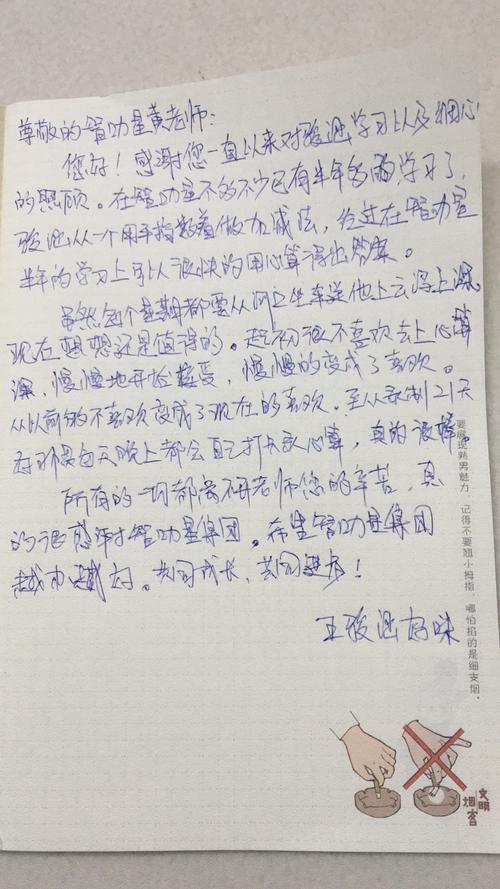 尊敬的智力星黄老师:
您好!感谢您一直以来对骏 学习以及细心
的照顾。在智力星不知不 已有半年的 学习了
骏 从一个用手指数着做加减法,经过在智力星
半年的学习上可以很快的用心算得出答案。
虽然每个星期都要从 坐车送他上 上课
现在想想还是值得的。起初很不喜欢去上心算
课,慢慢地开始接受,慢慢的变成了喜欢。
从以前的不喜欢变成了现在的喜欢。至从录制21天
每天晚上都会自己打卡录心算,真的很棒。
所有的一切都离不开老师您的辛苦,真
的很感谢智力星集团。希望智力星集团
越办越好。共同成长,共同进步!
王骏 妈咪
熟男魅力,记得不要翘小拇指,哪怕掐的是细支烟。
文明
烟客